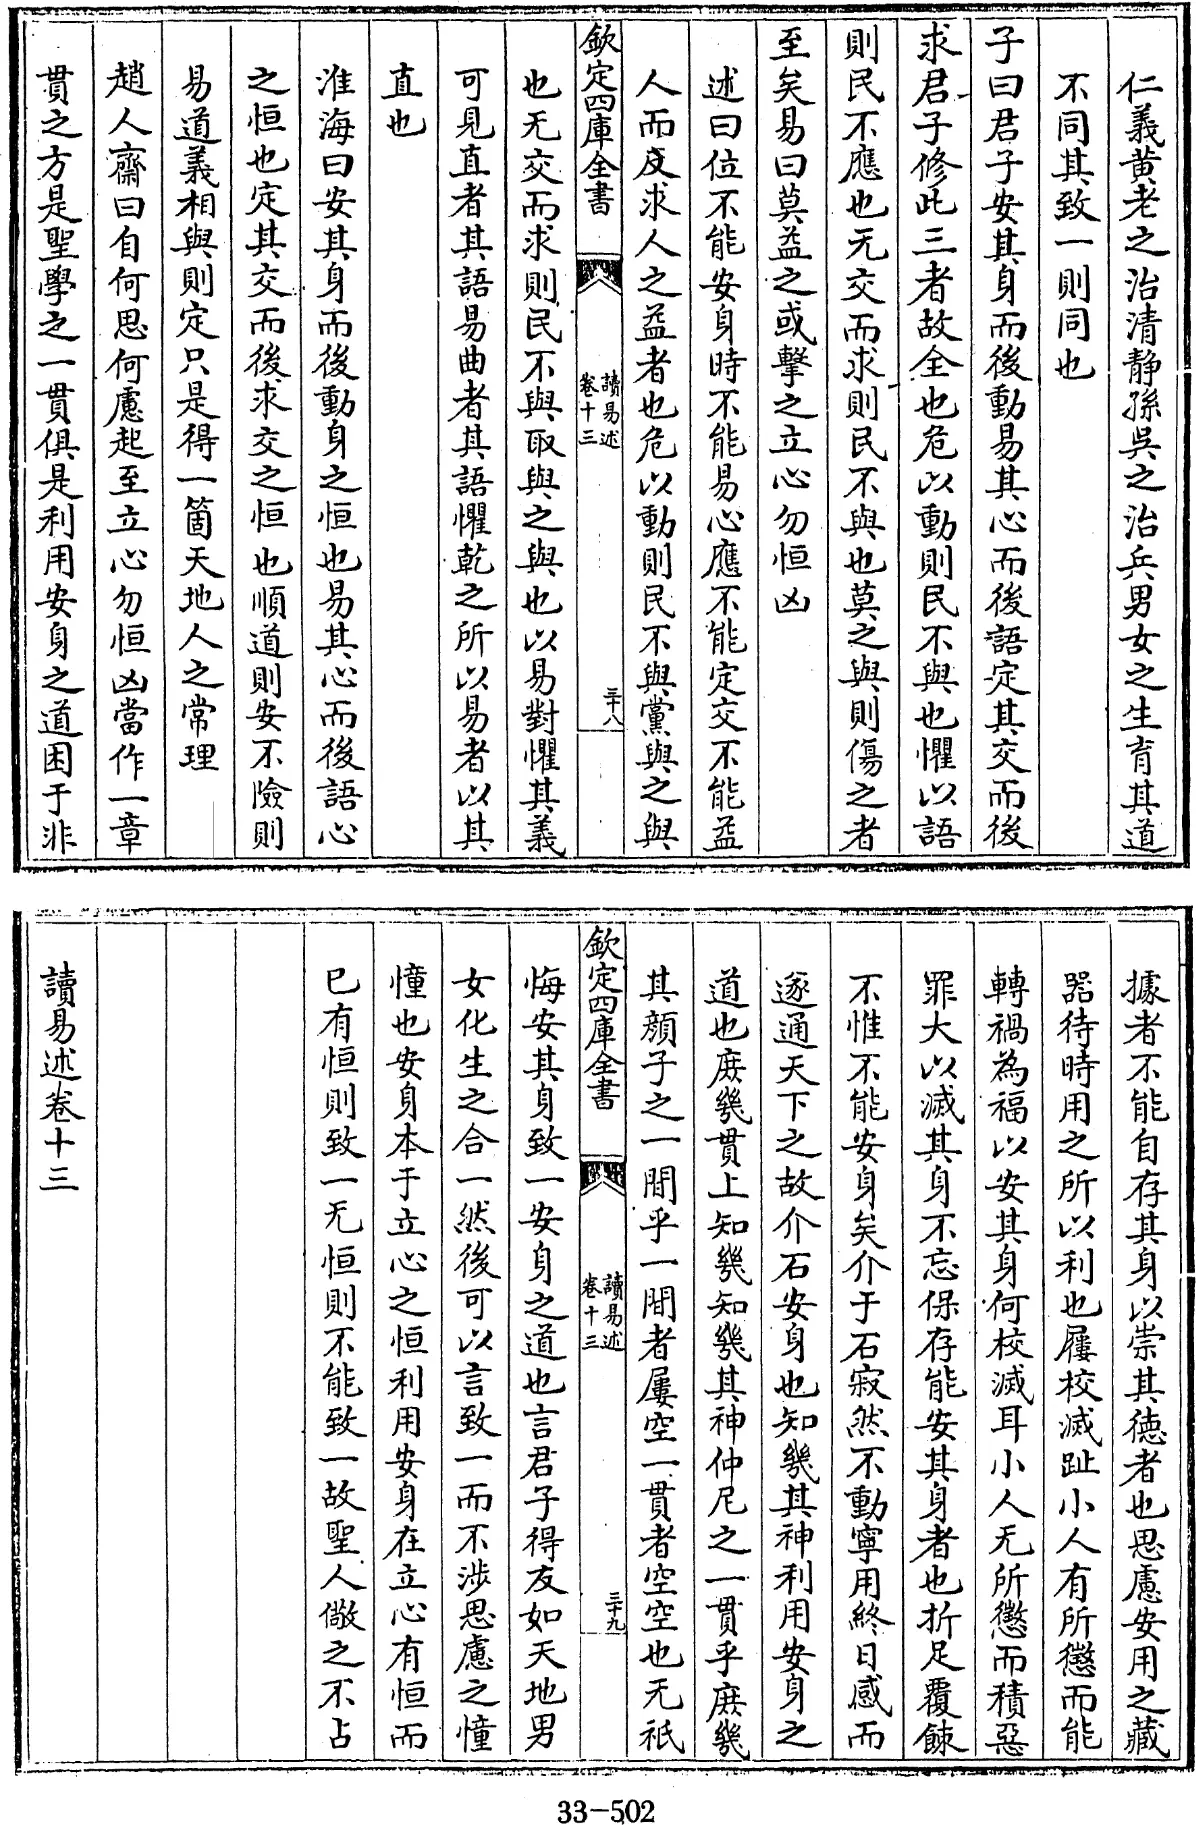 仁義黄老之治清静孫吳之治兵男女之生育其道
不同其致一則同也
子曰君子安其身而後動易其心而後語定其交而後
求君子修此三者故全也危以動則民不與也懼以語
則民不應也无交而求則民不與也莫之與則傷之者
至矣易曰莫益之或擊之立心勿恒凶
述曰位不能安身時不能易心應不能定交不能益
人而反求人之益者也危以動則民不與黨與之與
欽定四庫全書
讀易述
卷十三
三十八
也无交而求則民不與取與之與也以易對懼其義
可見直者其語易曲者其語懼乾之所以易者以其
直也
淮海曰安其身而後動身之恒也易其心而後語心
之恒也定其交而後求交之恒也順道則安不險則
易道義相與則定只是得一箇天地人之常理
趙人齋曰自何思何慮起至立心勿恒凶當作一章
貫之方是聖學之一貫俱是利用安身之道困于非
據者不能自存其身以崇其徳者也思慮安用之藏
器待時用之所以利也屨校滅趾小人有所懲而能
轉禍為福以安其身何校滅耳小人无所懲而積惡
罪大以滅其身不忘保存能安其身者也折足覆餗
不惟不能安身矣介于石寂然不動寧用終日感而
遂通天下之故介石安身也知幾其神利用安身之
道也庶幾貫上知幾知幾其神仲尼之一貫乎庶幾
其顔子之一間乎一間者屢空一貫者空空也无祇
欽定四庫全書
讀易述
卷十三
三十九
悔安其身致一安身之道也言君子得友如天地男
女化生之合一然後可以言致一而不涉思慮之憧
憧也安身本于立心之恒利用安身在立心有恒而
已有恒則致一无恒則不能致一故聖人儆之不占
讀易述卷十三
33-502